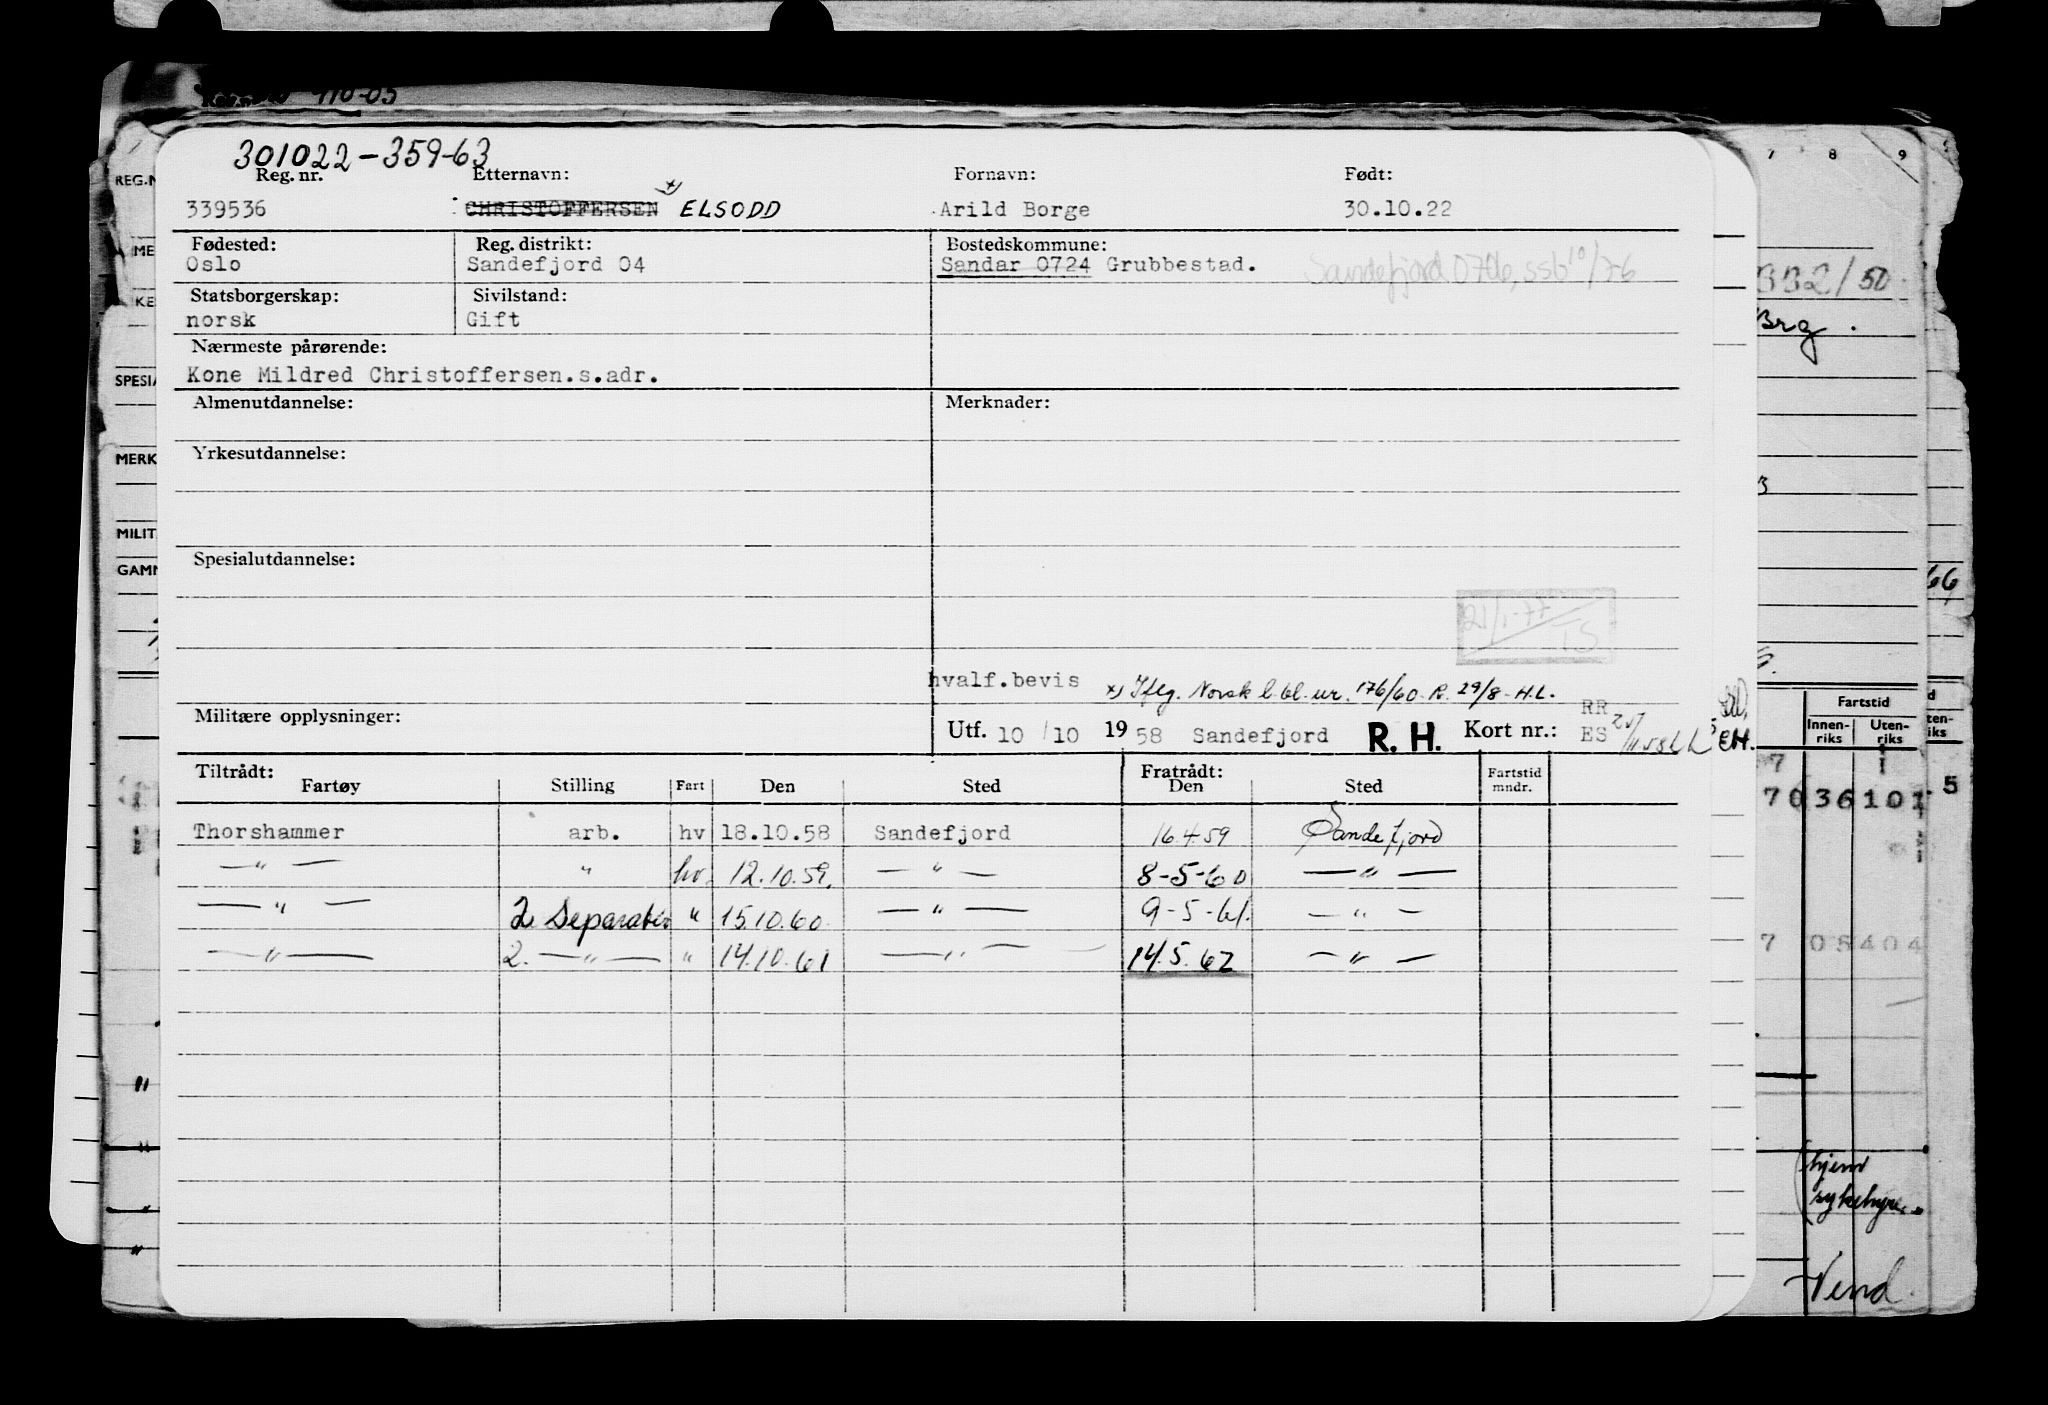 410-05
301022-359-63
Reg. nr. Etternavn: Fornavn: Født:
339536 CHRISTOFFERSEN x) ELSODD Arild Borge 30.10.22
Fødested: Reg. distrikt: Bostedskommune:
Oslo Sandefjord 04 Sandar 0724 Grubbestad. Sandefjord 0706, ssb 10/76
Statsborgerskap: Sivilstand:
norsk Gift
Nærmeste pårørende:
Kone Mildred Christoffersen.s.adr.
Almenutdannelse: Merknader:
Yrkesutdannelse:
Spesialutdannelse:
21/1-77
TS
hvalf.bevis x) Iflg. Norsk l.bl. nr. 176/60. R. 29/8- H.L.
Militære opplysninger: Utf. 10/10 1958 Sandefjord R. H. Kort nr.: RR
ES
Tiltrådt: Fratrådt:
Fartøy Stilling Fart Den Sted Den Sted Fartstid mndr.
Thorshammer arb. hv 18.10.58 Sandefjord 16.4.59 Sandefjord
— " — " hv. 12.10.59. — " — 8-5-60 — " —
— " — 2. Separatør " 15.10.60. — " — 9-5-61. — " —
— " — 2. — " — " 14.10.61 — " — 14.5.62 — " —
REG.N
ME
KE
SPESIA
MERK
MILIT
GAMM
7 8 9
332/50
Brg.
66
Fartstid
Innen-riks Uten-riks
EH.
7 1
70 36 101 5
7 05 404
hjem
sykehyre.
Vend.